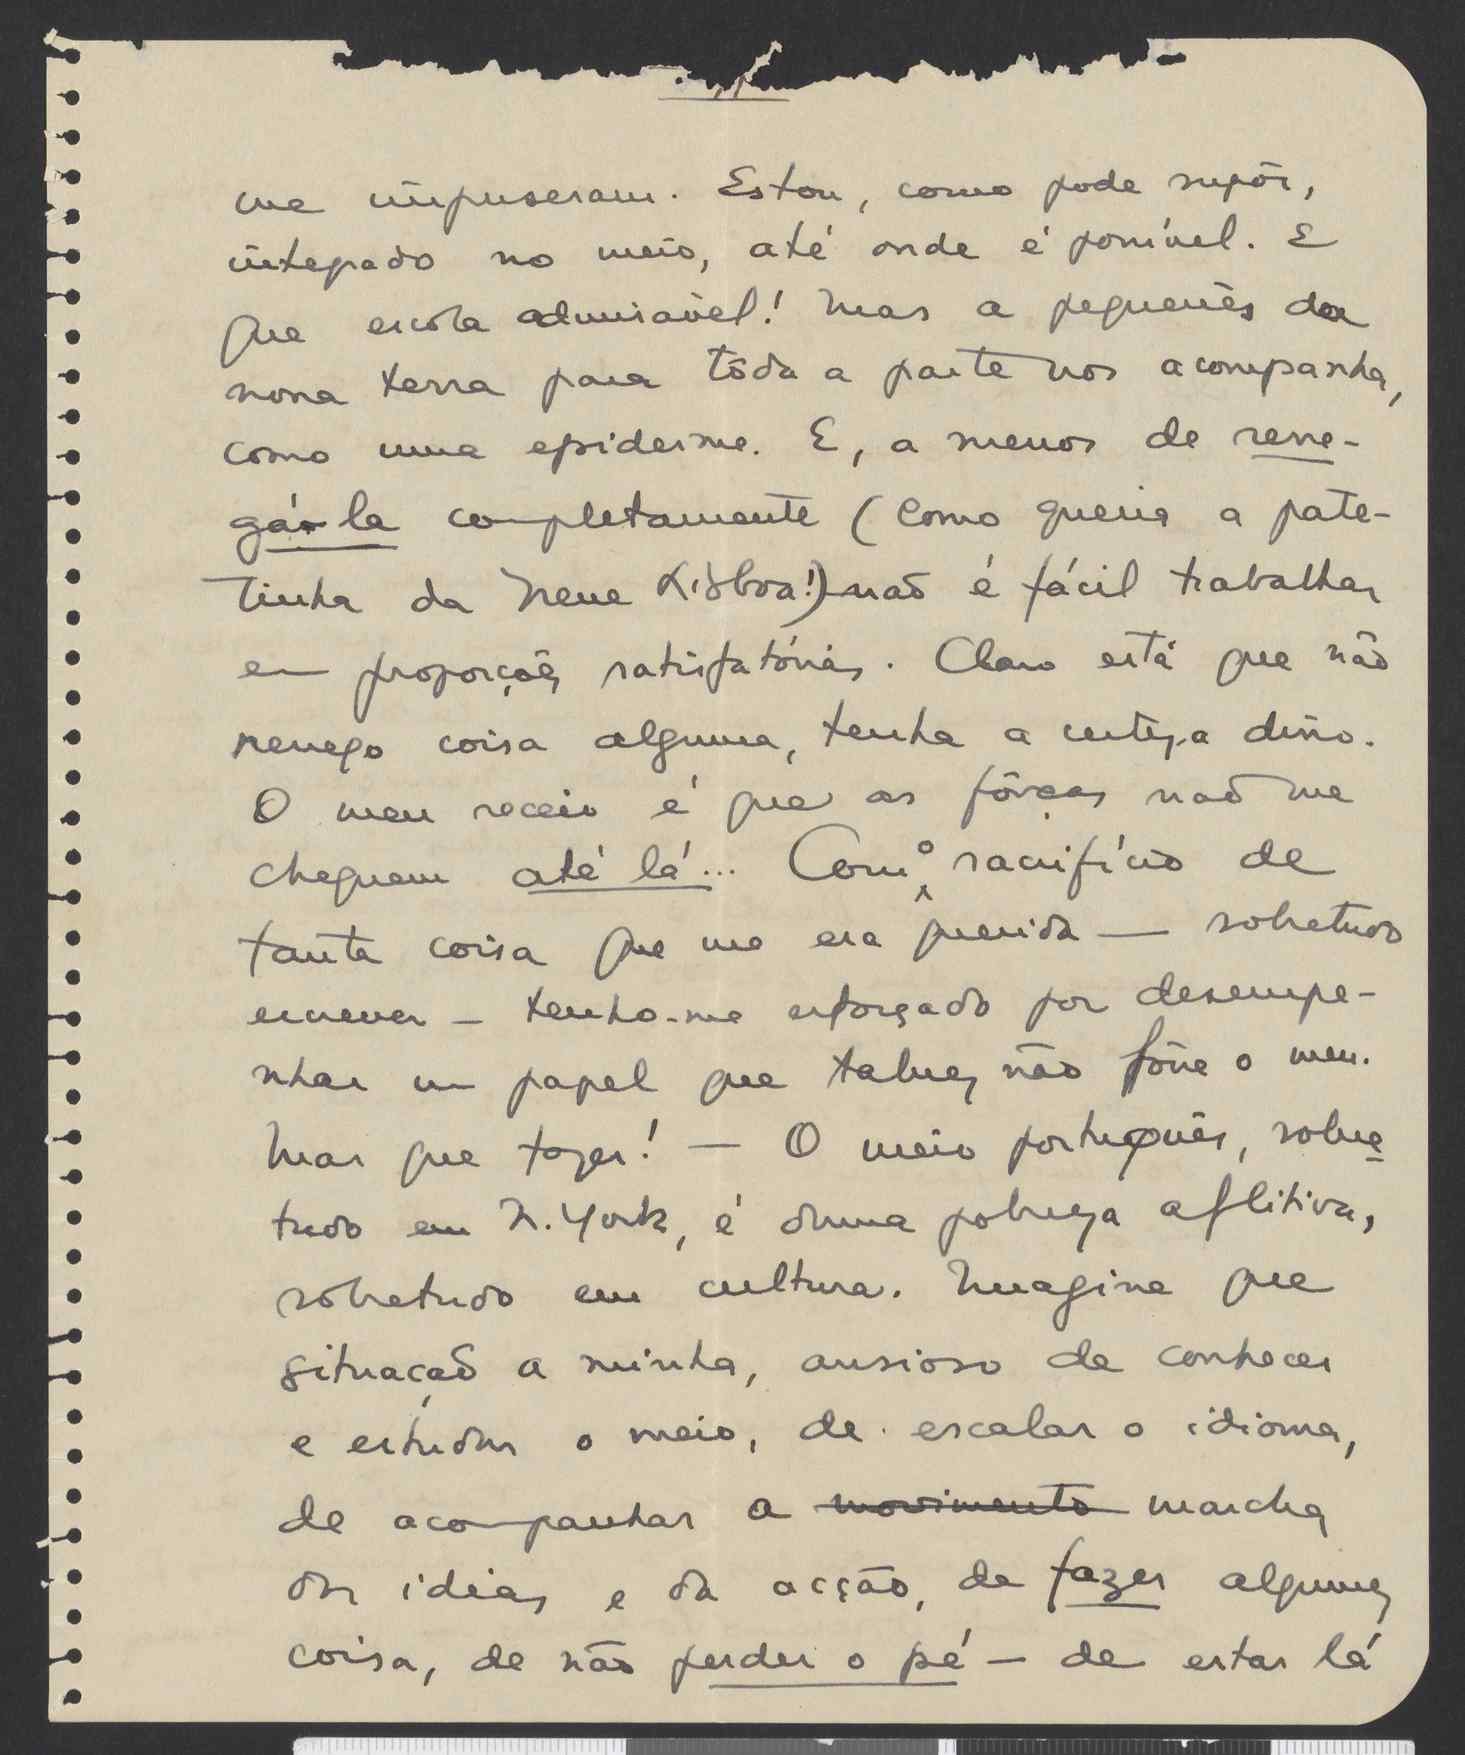 me impuseram. Estou, como pode supôr,
integrado no meio, até onde é possível. E
que escola admirável! Mas a pequenês da
nossa terra para tôda a parte nos acompanha,
como uma epiderme. E, a menos de rene-
gá-la completamente (como queria a pate-
tinha da Irene Lisboa!) não é fácil trabalhar
em proporções satisfatórias. Claro está que não
renego coisa alguma, tenha a certeza disso.
O meu receio é que as fôrças não me
cheguem até lá... Com o sacrifício de
tanta coisa que me era querida — sobretudo
escrever — tenho-me esforçado por desempe-
nhar um papel que talvez não fôsse o meu.
Mas que fazer! — O meio português, sobre-
tudo em N. York, é duma pobreza aflitiva,
sobretudo em cultura. Imagine que
situação a minha, ansioso de conhecer
e estudar o meio, de escalar o idioma,
de acompanhar a movimento marcha
das ideias e da acção, de fazer alguma
coisa, de não perder o pé — de estar lá